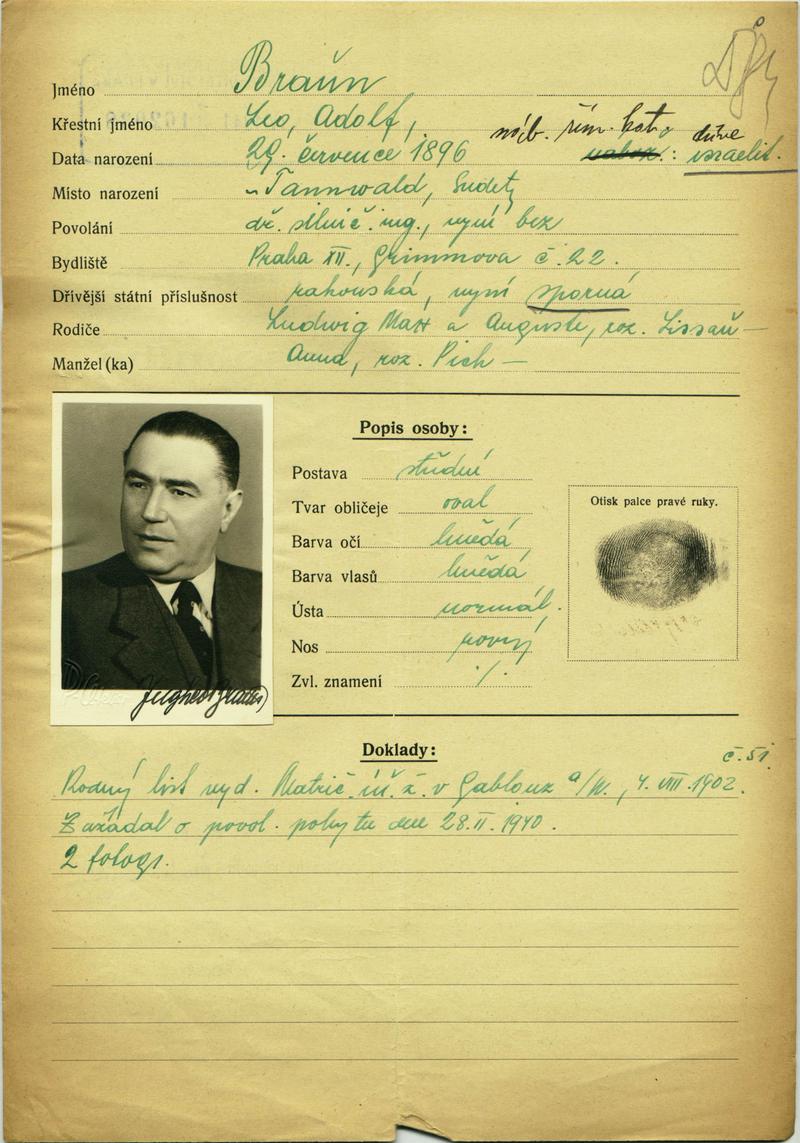 Jméno Braun
Křestní jméno Leo, Adolf,
náb. řím. kat. dříve
Data narození 29. července 1896 nábož.: israelit.
Místo narození Tannwald, Sudety
Povolání ing., nyní bez
Bydliště Praha XII., Grimmova č. 22.
Dřívější státní příslušnost rakouská, nyní sporná
Rodiče Ludwig Max a Auguste, roz. Lissau —
Manžel (ka) Anna, roz. Pich —
Popis osoby:
Postava střední
Tvar obličeje oval
Barva očí hnědá
Barva vlasů hnědá
Ústa normál.
Nos rovný
Zvl. znamení ./.
Otisk palce pravé ruky.
Doklady:
č. 51
Rodný list vyd. Matrič. úř. ž. v Gablonz a/N., 4. VIII. 1902.
Zažádal o povol. pobytu dne 28. II. 1940.
2 fotogr.